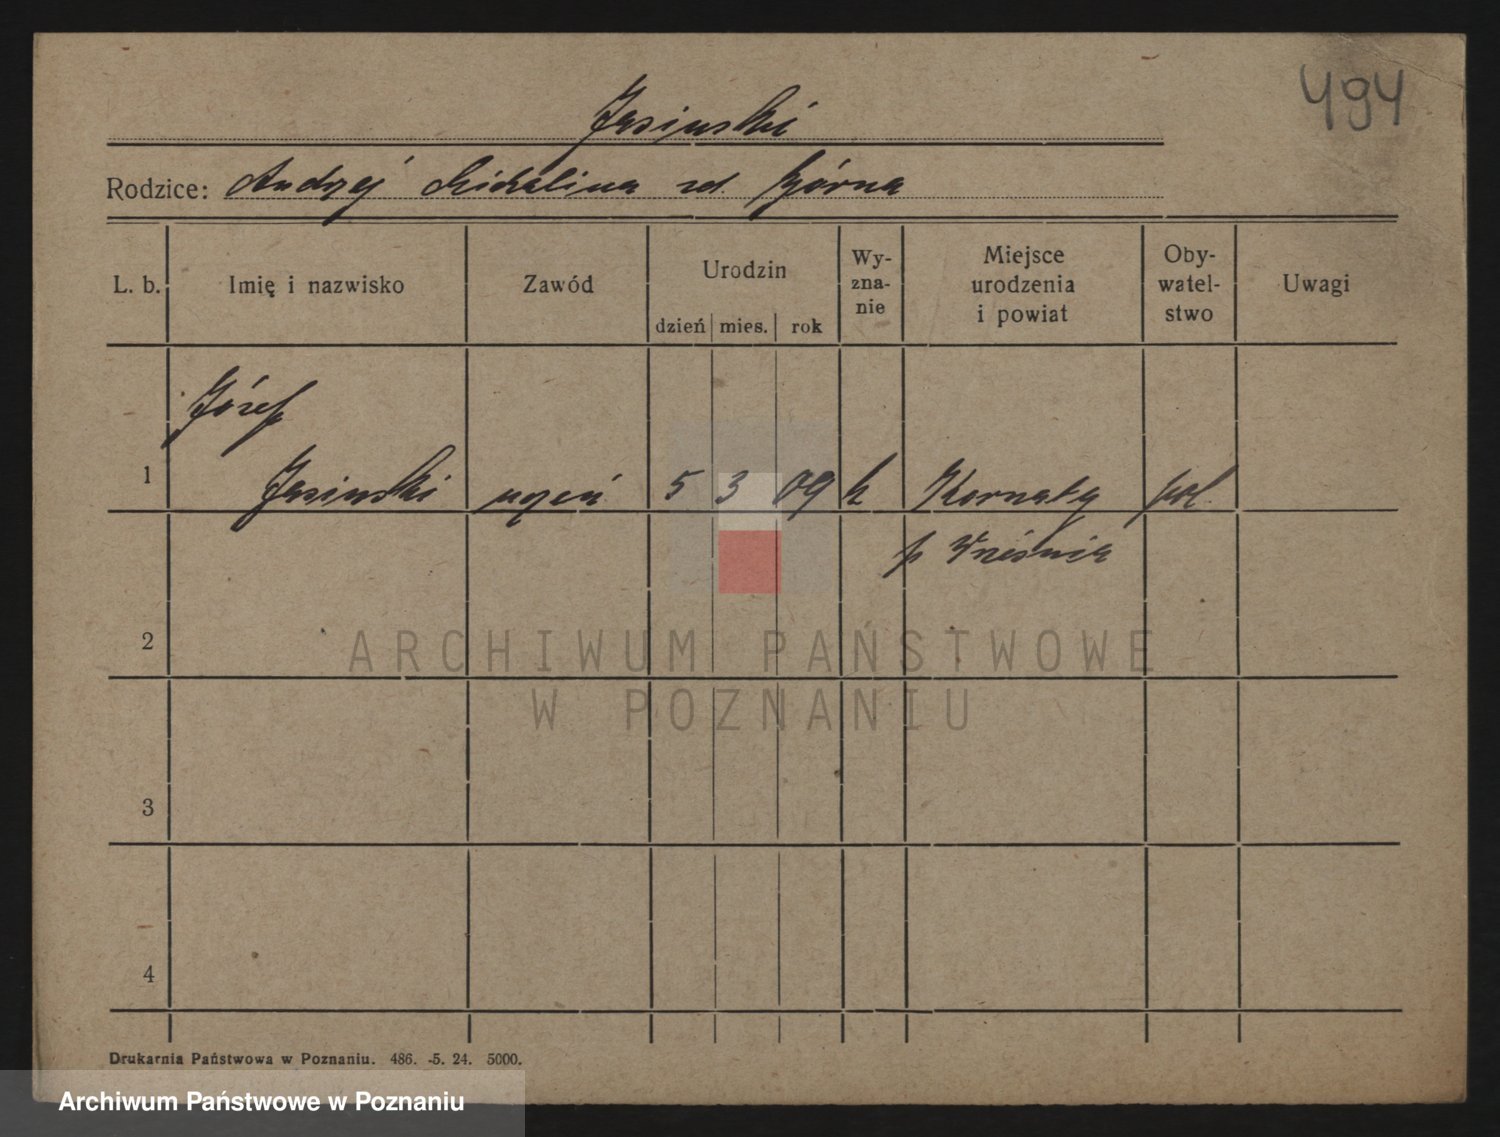 494
Jasiński
Rodzice: Andrzej Michalina zd. Górna
L. b.
Imię i nazwisko
Zawód
Urodzin
dzień mies. rok
Wy-
zna-
nie
Miejsce
urodzenia
i powiat
Oby-
watel-
stwo
Uwagi
Józef
1 Jasiński uczeń 5 3 09 k Kornaty pol.
p Września
2
ARCHIWUM PAŃSTWOWE
W POZNANIU
3
4
Drukarnia Państwowa w Poznaniu. 486. -5. 24. 5000.
Archiwum Państwowe w Poznaniu